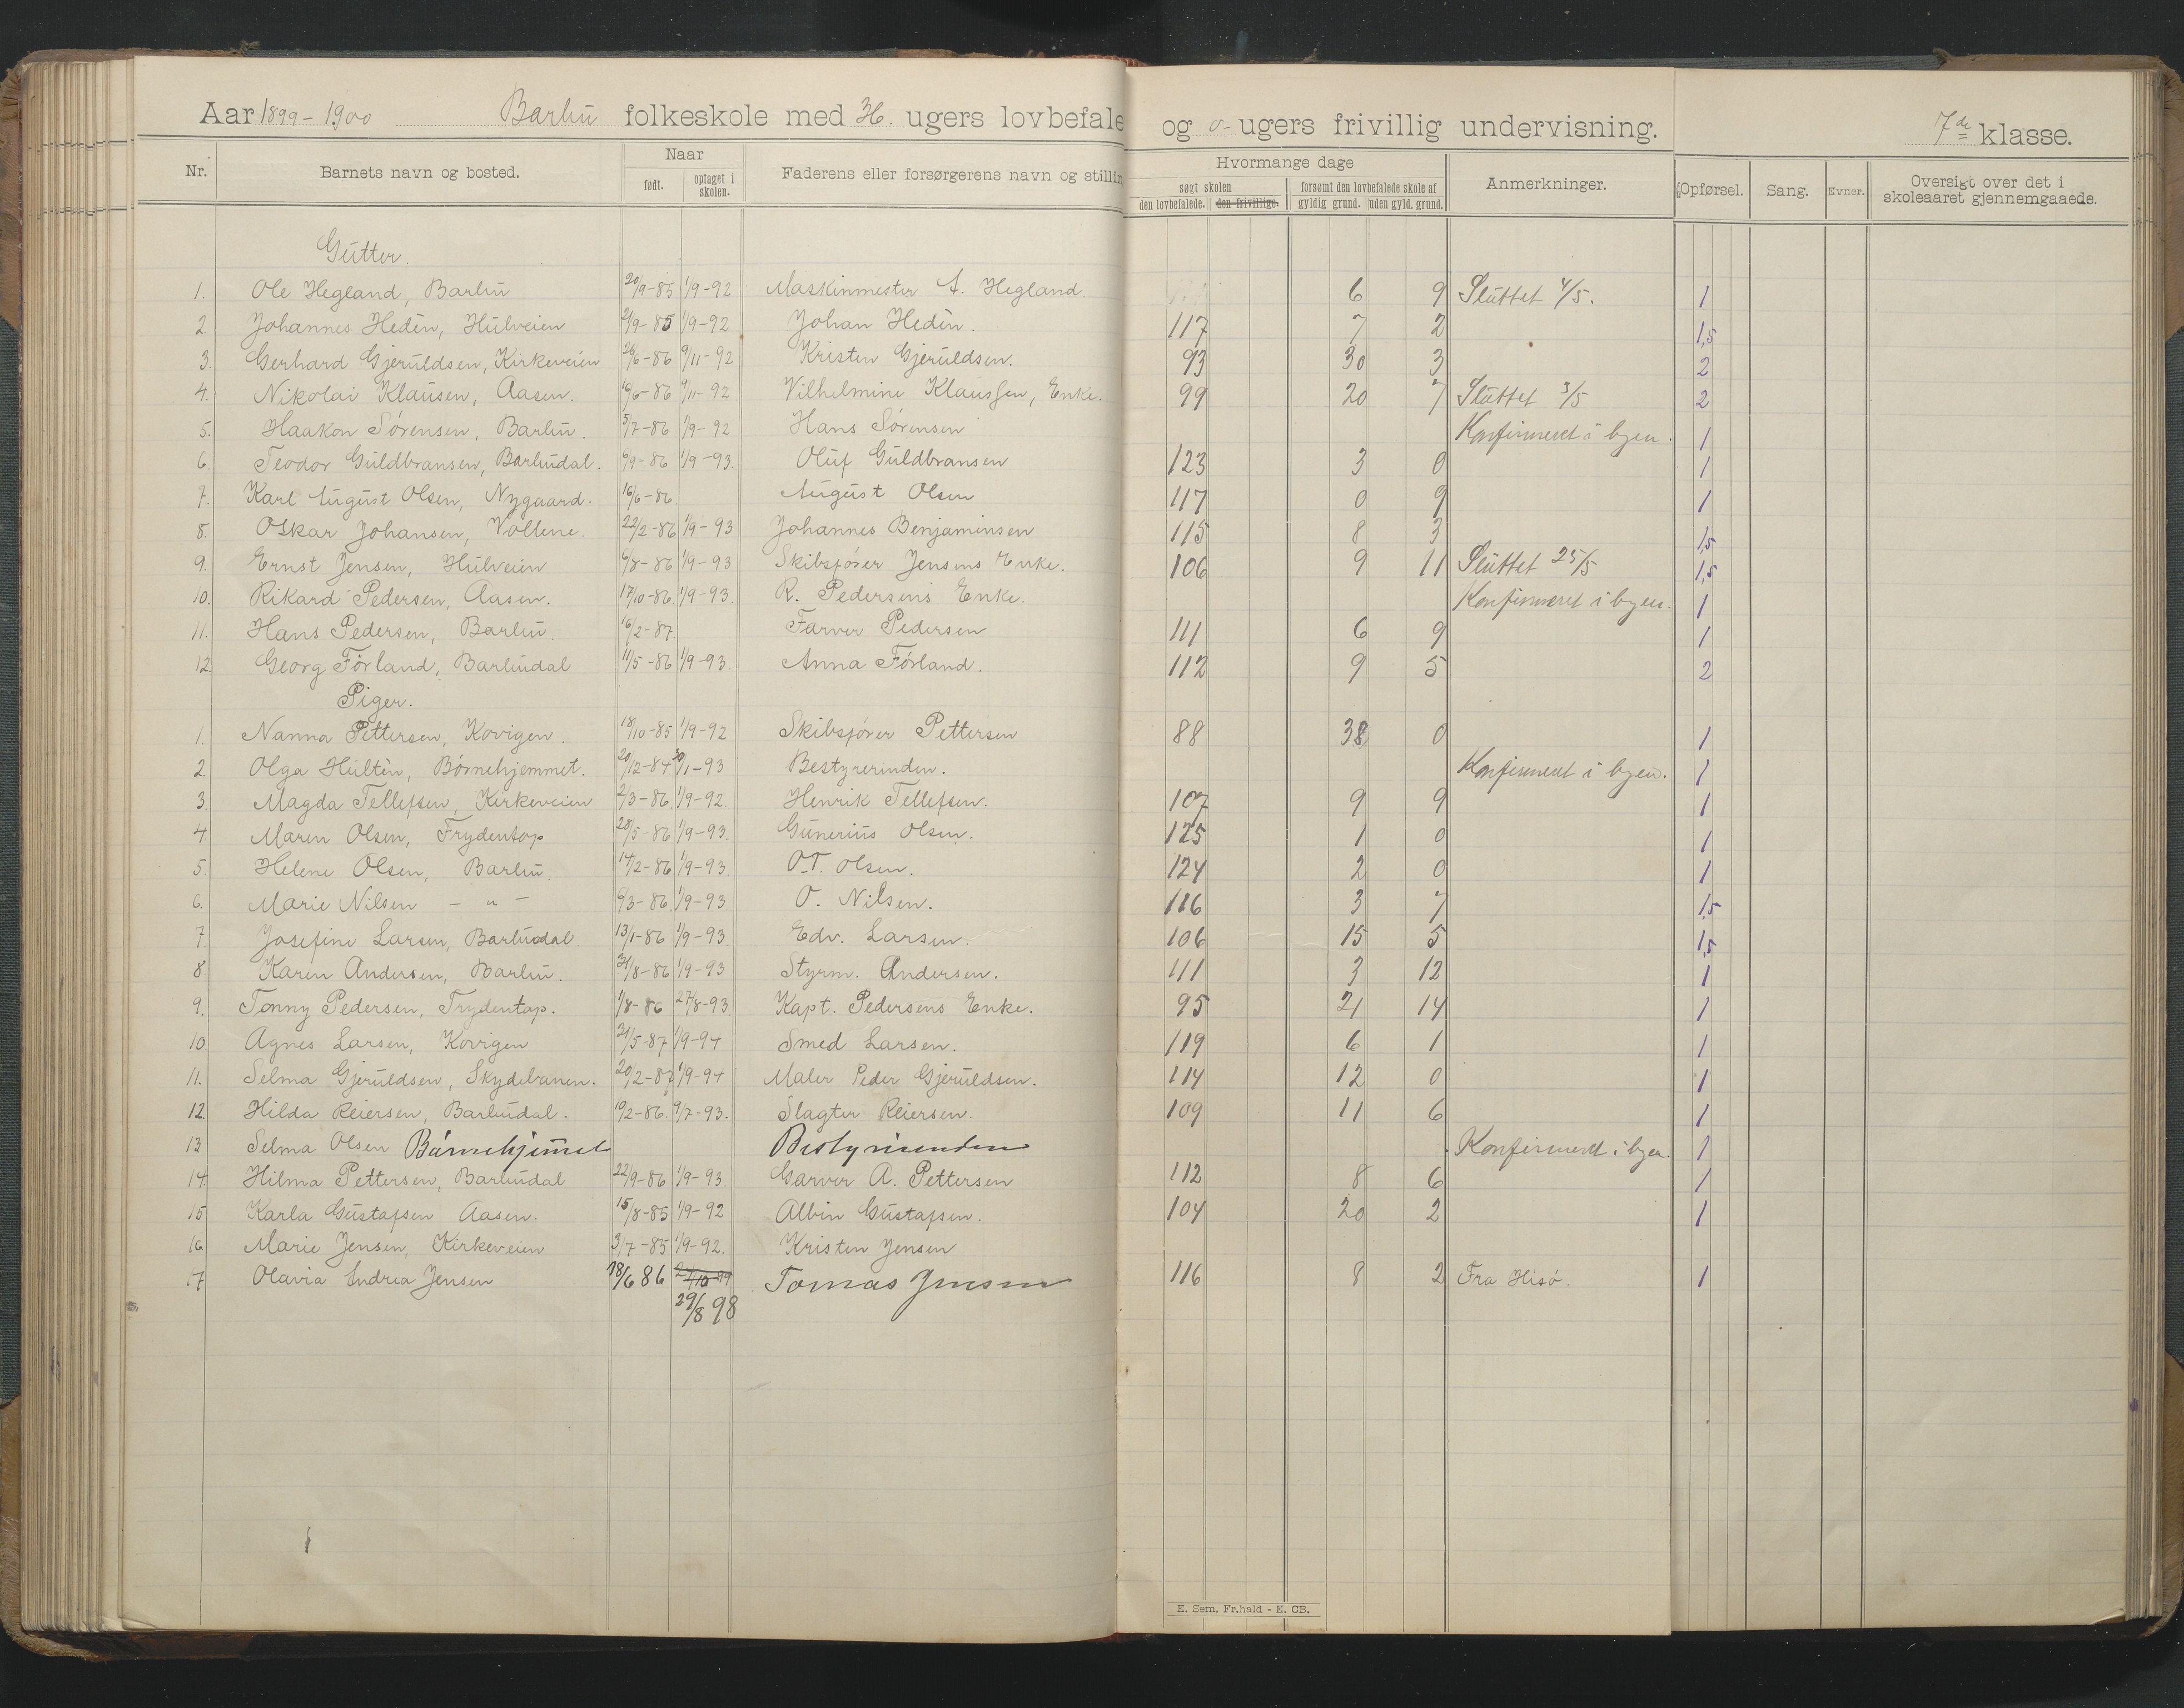 Aar 1899-1900 Barbu folkeskole med ugers lovbefale og 0- ugers frivillig undervisning. 7de klasse.
Nr. Barnets navn og bosted. Naar født. optaget i skolen. Faderens eller forsørgerens navn og stillin Hvormange dage søgt skolen den lovbefalede. den frivillige. forsømt den lovbefalede skole af gyldig grund. uden gyld. grund. Anmerkninger. Opførsel. Sang. Evner. Oversigt over det i skoleaaret gjennemgaaede.
Gutter.
1. Ole Hegland, Barbu 20/9-85 1/9-92 Maskinmester A. Hegland. 6 9 Sluttet 4/5. 1
2 Johannes Hedén, Hulveien 2/9-85 1/9-92 Johan Hedén. 117 7 2 1,5
3. Gerhard Gjeruldsen, Kirkeveien 26/6-86 9/11-92 Kristen Gjeruldsen. 93 30 3 2
4. Nikolai Klausen, Aasen. 16/6-86 9/11-92 Vilhelmine Klaussen, Enke. 99 20 7 Sluttet 3/5 2
5. Haakon Sørensen, Barbu. 5/7-86 1/9-92 Hans Sørensen Konfirmeret i byen. 1
6. Teodor Guldbransen, Barbudal. 6/9-86 1/9-93. Oluf Guldbransen 123 3 0 1
7. Karl August Olsen, Nygaard. 16/6-86 August Olsen 117 0 9 1
8. Oskar Johansen, Vollene. 22/2-86 1/9-93 Johannes Benjaminsen 115 8 3 1,5
9. Ernst Jensen, Hulveien 6/8-86 1/9-93 Skibsfører Jensens Enke. 106 9 11 Sluttet 25/5 1,5
10. Rikard Pedersen, Aasen. 17/10-86. 1/9-93. R. Pedersens Enke. Konfirmeret i byen. 1
11. Hans Pedersen, Barbu. 16/2-87. Farver Pedersen 111 6 9 1
12 Georg Førland, Barbudal 11/5-86 1/9-93. Anna Førland. 112 9 5 2
Piger.
1. Nanna Pettersen, Kovigen. 18/10-85 1/9-92 Skibsfører Pettersen 88 38 0 1
2. Olga Hultén, Børnehjemmet. 20/12-84 30/1-93 Bestyrerinden. Konfirmeret i byen. 1
3. Magda Tellefsen, Kirkeveien 2/3-86 1/9-92. Henrik Tellefsen. 107 9 9 1
4 Maren Olsen, Frydentop 28/5-86 1/9-93. Gunerius Olsen. 125 1 0 1
5. Helene Olsen, Barbu. 14/2-86 1/9-93. O.T. Olsen. 124 2 0 1
6. Marie Nilsen - " - 9/3-86 1/9-93 O. Nilsen. 116 3 7 1,5
7. Josefine Larsen, Barbudal 13/1-86 1/9-93. Edv. Larsen. 106 15 5 1,5
8 Karen Andersen, Barbu. 31/8-86 1/9-93 Styrm. Andersen. 111 3 12 1
9. Tonny Pedersen, Frydentop. 1/8-86 27/8-93 Kapt. Pedersens Enke. 95 21 14 1
10 Agnes Larsen, Kovigen 31/5-87 1/9-94 Smed Larsen. 119 6 1 1
11. Selma Gjeruldsen, Skydebanen. 20/2-87 1/9-94 Maler Peder Gjeruldsen. 114 12 0 1
12 Hilda Reiersen, Barbudal. 10/2-86. 9/7-93. Slagter Reiersen. 109 11 6 1
13 Selma Olsen Børnehjemmet Bestyrerinden Konfirmeret i byen. 1
14. Hilma Pettersen, Barbudal 22/9-86 1/9-93 Garver A. Pettersen 112 8 6 1
15 Karla Gustafsen Aasen. 15/8-85 1/9-92 Albin Gustafsen. 104 20 2 1
16 Marie Jensen, Kirkeveien 3/7-85 1/9-92. Kristen Jensen
17 Olavia Andrea Jensen 18/6 86 Tomas Jensen 116 8 2 Fra Hisø. 1
29/8 98
E. Sem, Fr.hald - E. CB.